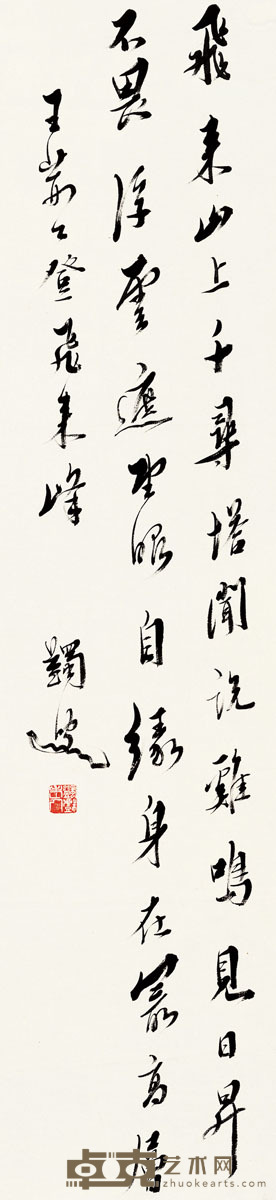 飛来山上千尋塔聞説雞鳴見日昇
不畏浮雲遮望眼自緣身在最高層
王荊公登飛来峰
卓克艺术网
zhuokearts.com